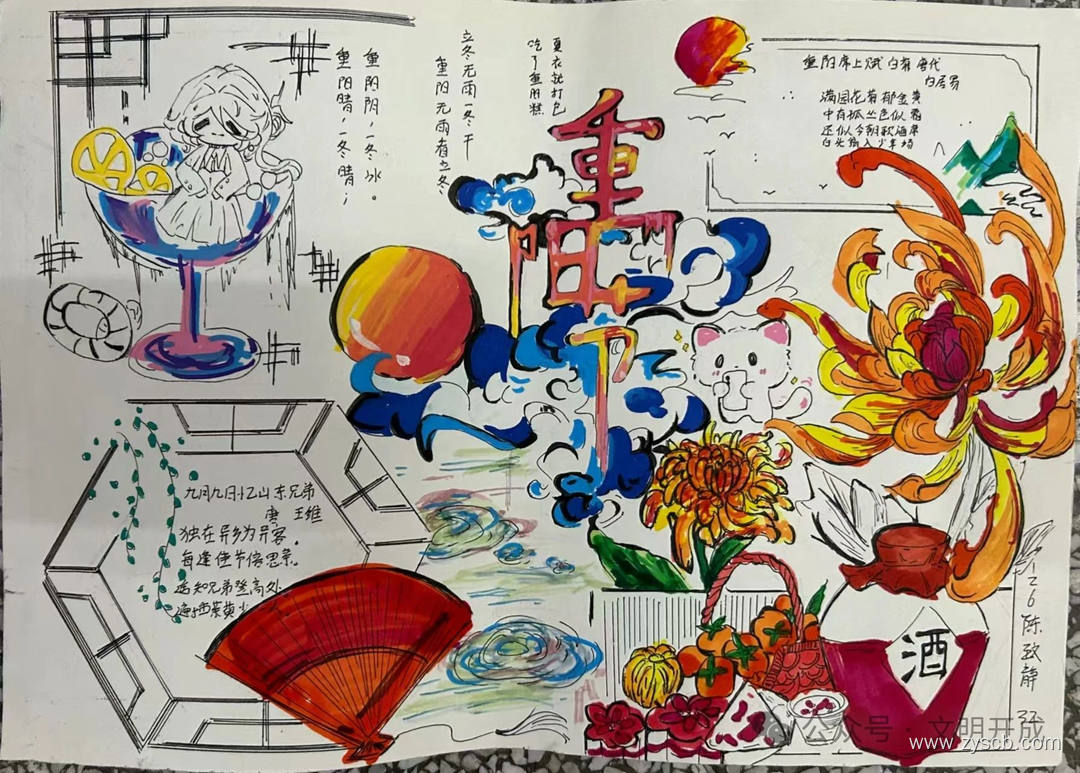 重阳节
重阳阴,一冬冰。
重阳晴,一冬晴;
立冬无雨一冬干
重阳无雨看立冬
夏衣就打包
吃了重阳糕
重阳席上赋白菊 唐代
白居易
满园花菊郁金黄
中有孤丛色似霜
还似今朝歌酒席
白头翁入少年场
九月九日忆山东兄弟
唐 王维
独在异乡为异客,
每逢佳节倍思亲。
遥知兄弟登高处
遍插茱萸少
酒
陈致静
公众号·文明开成
www.zyscb.com